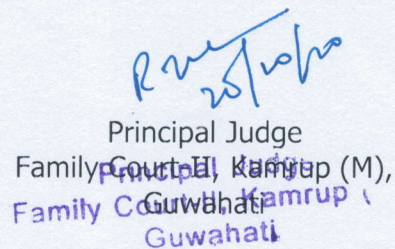 20/10/20
Principal Judge
Family Court-II, Kamrup (M),
Guwahati
Principal Judge
Family Court-II, Kamrup (
Guwahati